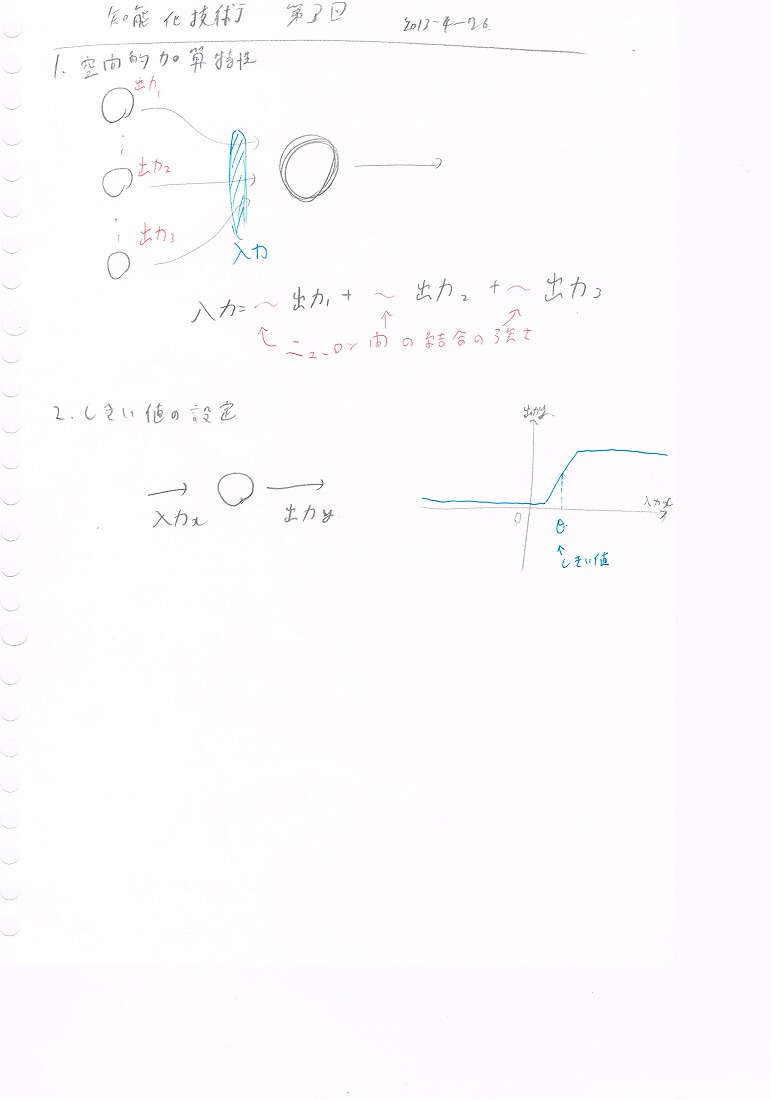 知能化技術 第3回 2012-4-26
1. 空間的加算特性
出力1
出力2
出力3
入力
入力=〜出力1+〜出力2+〜出力3
ニューロン間の結合の強さ
2. しきい値の設定
出力y
入力x 出力y
入力x
0 θ
しきい値